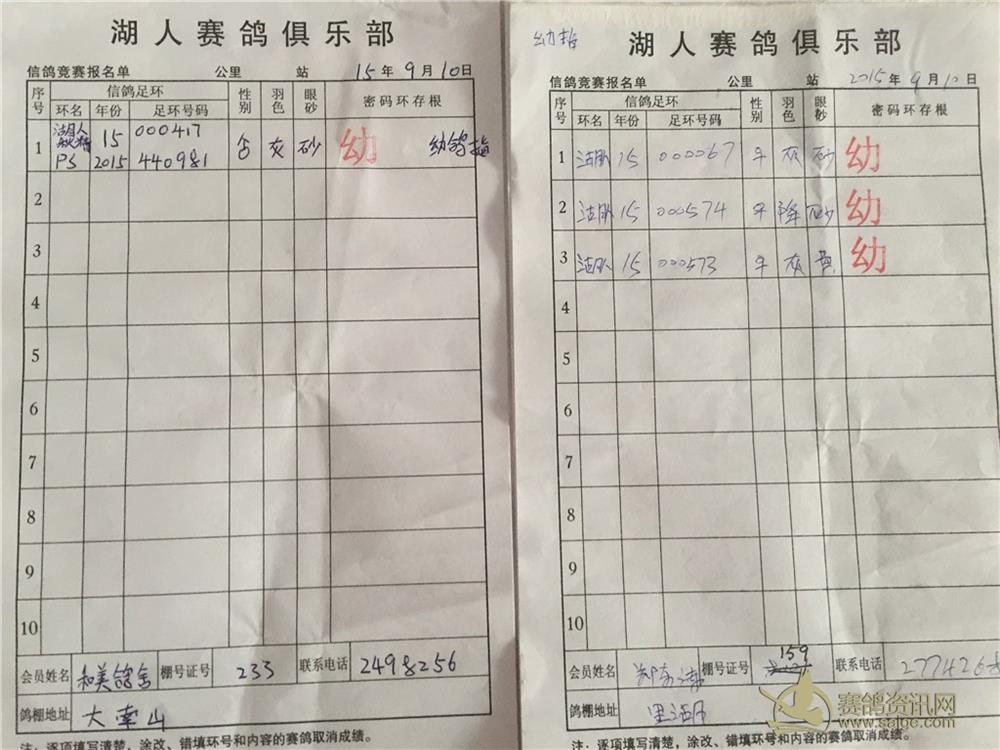 湖人赛鸽俱乐部
信鸽竞赛报名单 公里 站 15年9月10日
序号 信鸽足环 性别 羽色 眼砂 密码环存根
环名 年份 足环号码
1 湖人 15 000417
PS 2015 440981 灰 砂 幼 幼鸽指
2
3
4
5
6
7
8
9
10
会员姓名 和美鸽舍 棚号证号 233 联系电话 2498256
鸽棚地址 大牵山
注：逐项填写清楚，涂改、错填环号和内容的赛鸽取消成绩。
幼指
湖人赛鸽俱乐部
信鸽竞赛报名单 公里 站 2015年9月10日
序号 信鸽足环 性别 羽色 眼砂 密码环存根
环名 年份 足环号码
1 15 000067 灰 砂 幼
2 15 000574 绛 砂 幼
3 15 000573 灰 黄 幼
4
5
6
7
8
9
10
会员姓名 棚号证号 159 联系电话 277426
鸽棚地址
注：逐项填写清楚，涂改、错填环号和内容的赛鸽取消成绩。
赛鸽资讯网
www.saige.com